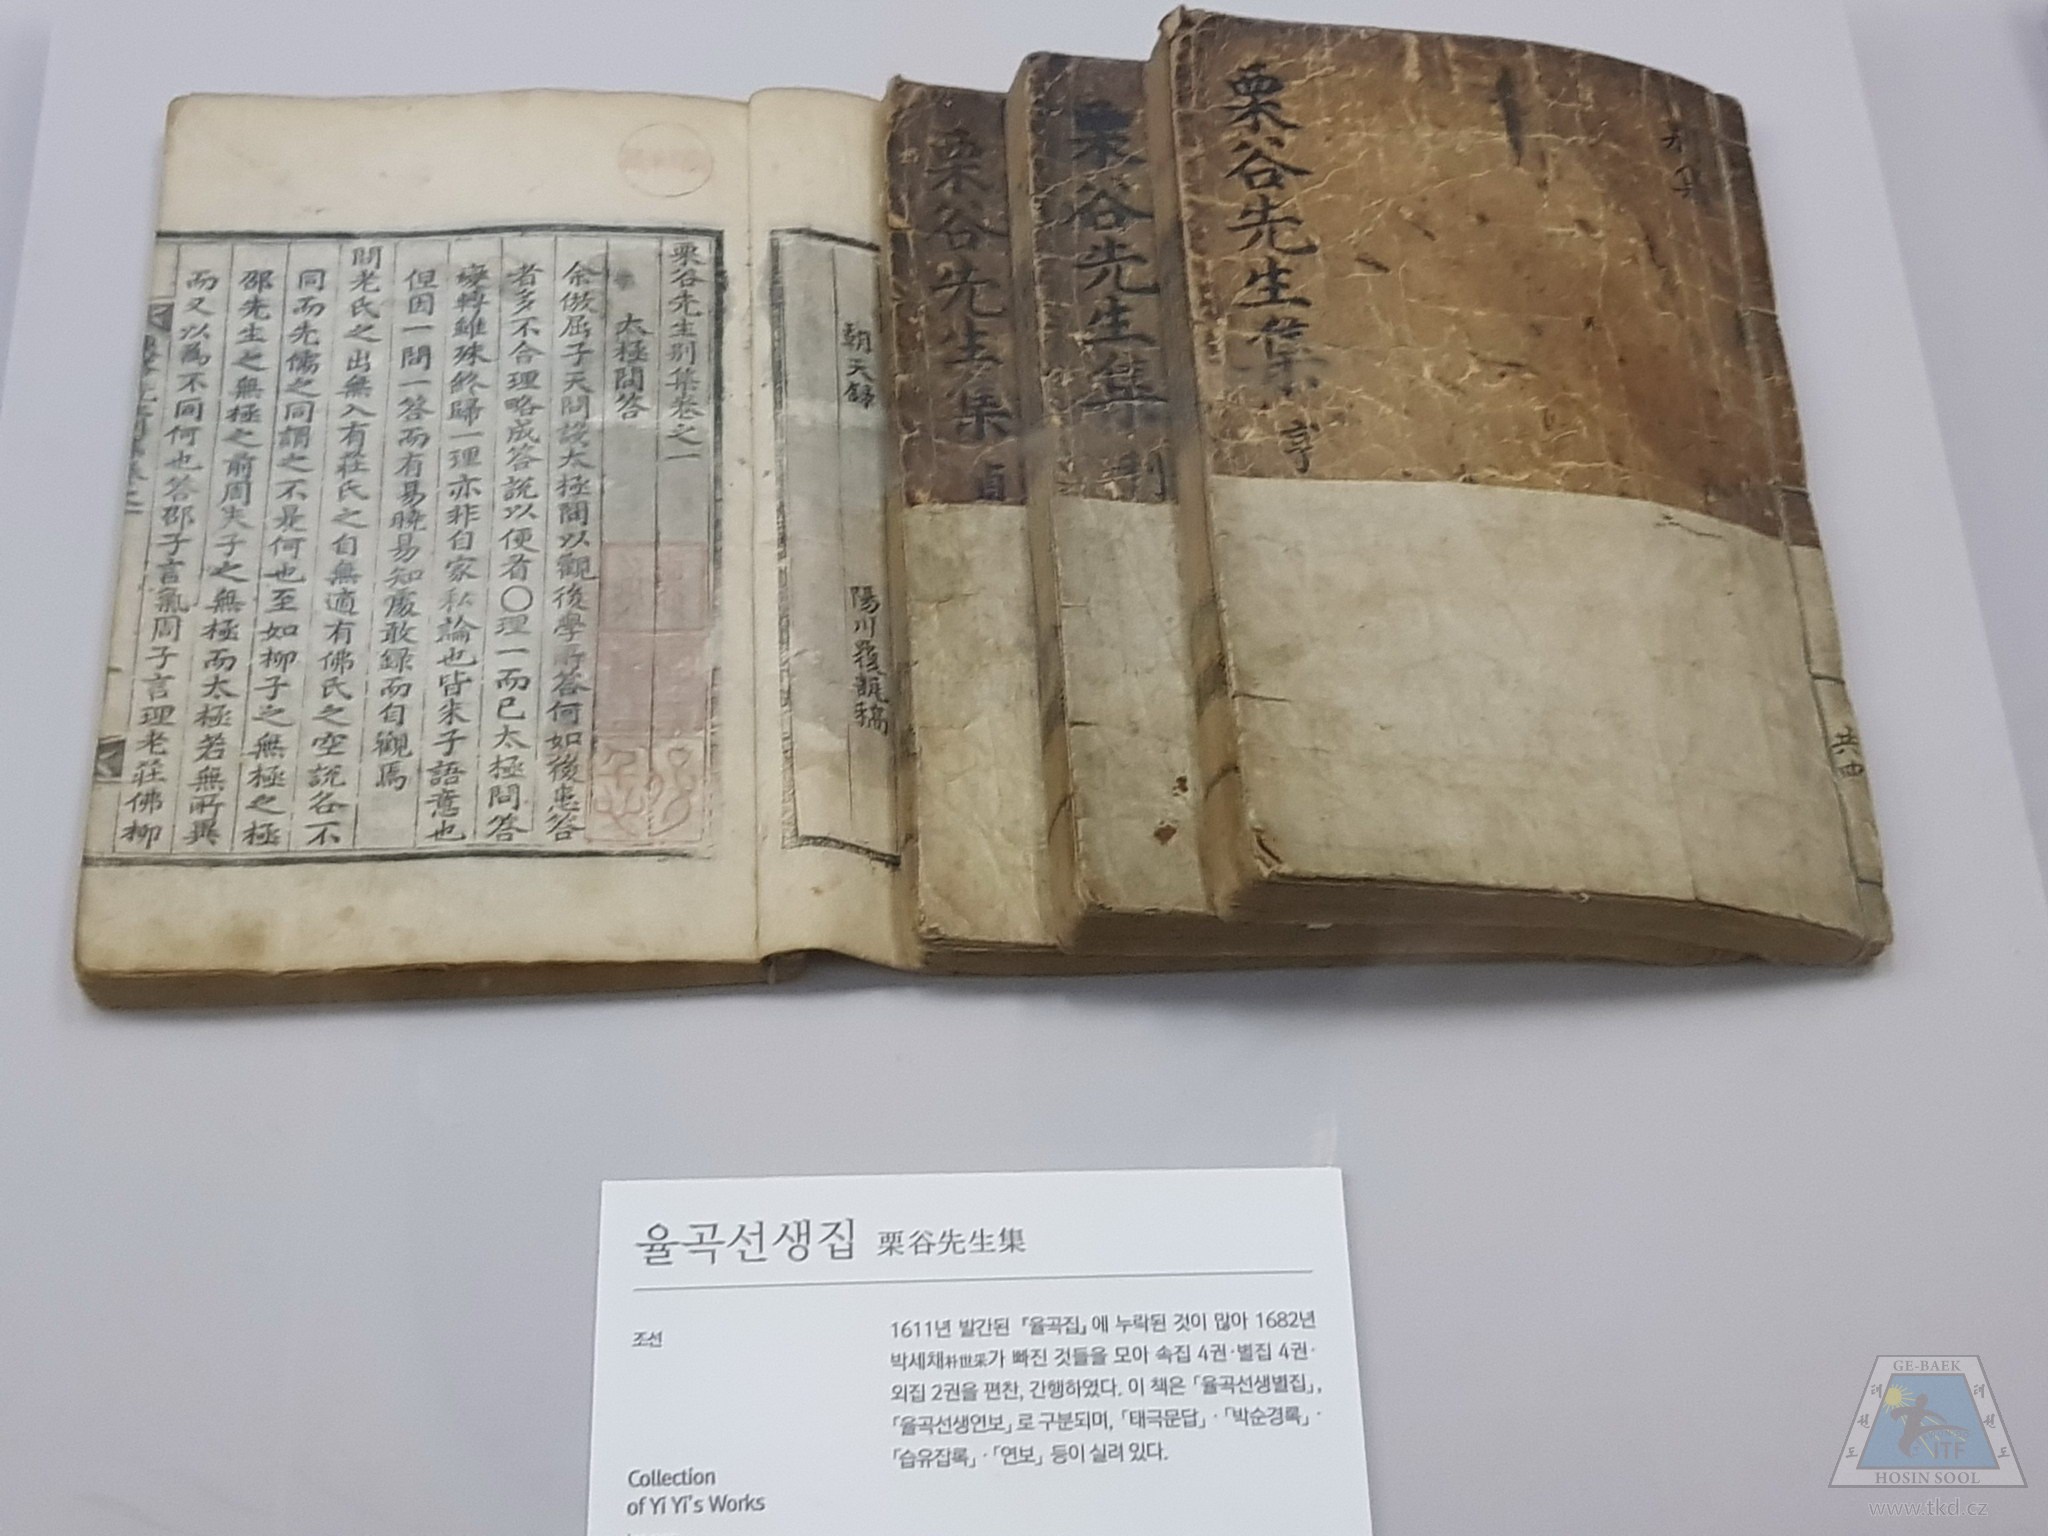 栗谷先生集 亨
栗谷先生集 利
栗谷先生集 貞
共四
朝天錄
陽川
稿
栗谷先生別集卷之一
太極問答
余倣屈子天問設太極問以觀後學所答何如後患答
者多不合理略成答說以便省○理一而已太極問答
變轉雖殊終歸一理亦非自家私論也皆朱子語意也
但因一問一答而有易曉易知處敢錄而自觀焉
問老氏之出無入有莊氏之自無適有佛氏之空說各不
同而先儒之同謂之不是何也至如柳子之無極之極
邵先生之無極之前周夫子之無極而太極若無所異
而又以爲不同何也答邵子言氣周子言理老莊佛柳
율곡선생집 栗谷先生集
조선
1611년 발간된 「율곡집」에 누락된 것이 많아 1682년
박세채朴世采가 빠진 것들을 모아 속집 4권·별집 4권·
외집 2권을 편찬, 간행하였다. 이 책은 「율곡선생별집」,
「율곡선생연보」로 구분되며, 「태극문답」·「박순경록」·
「습유잡록」·「연보」 등이 실려 있다.
Collection
of Yi Yi's Works
GE-BAEK
태 태
권 권
도 도
ITF
HOSIN SOOL
www.tkd.cz